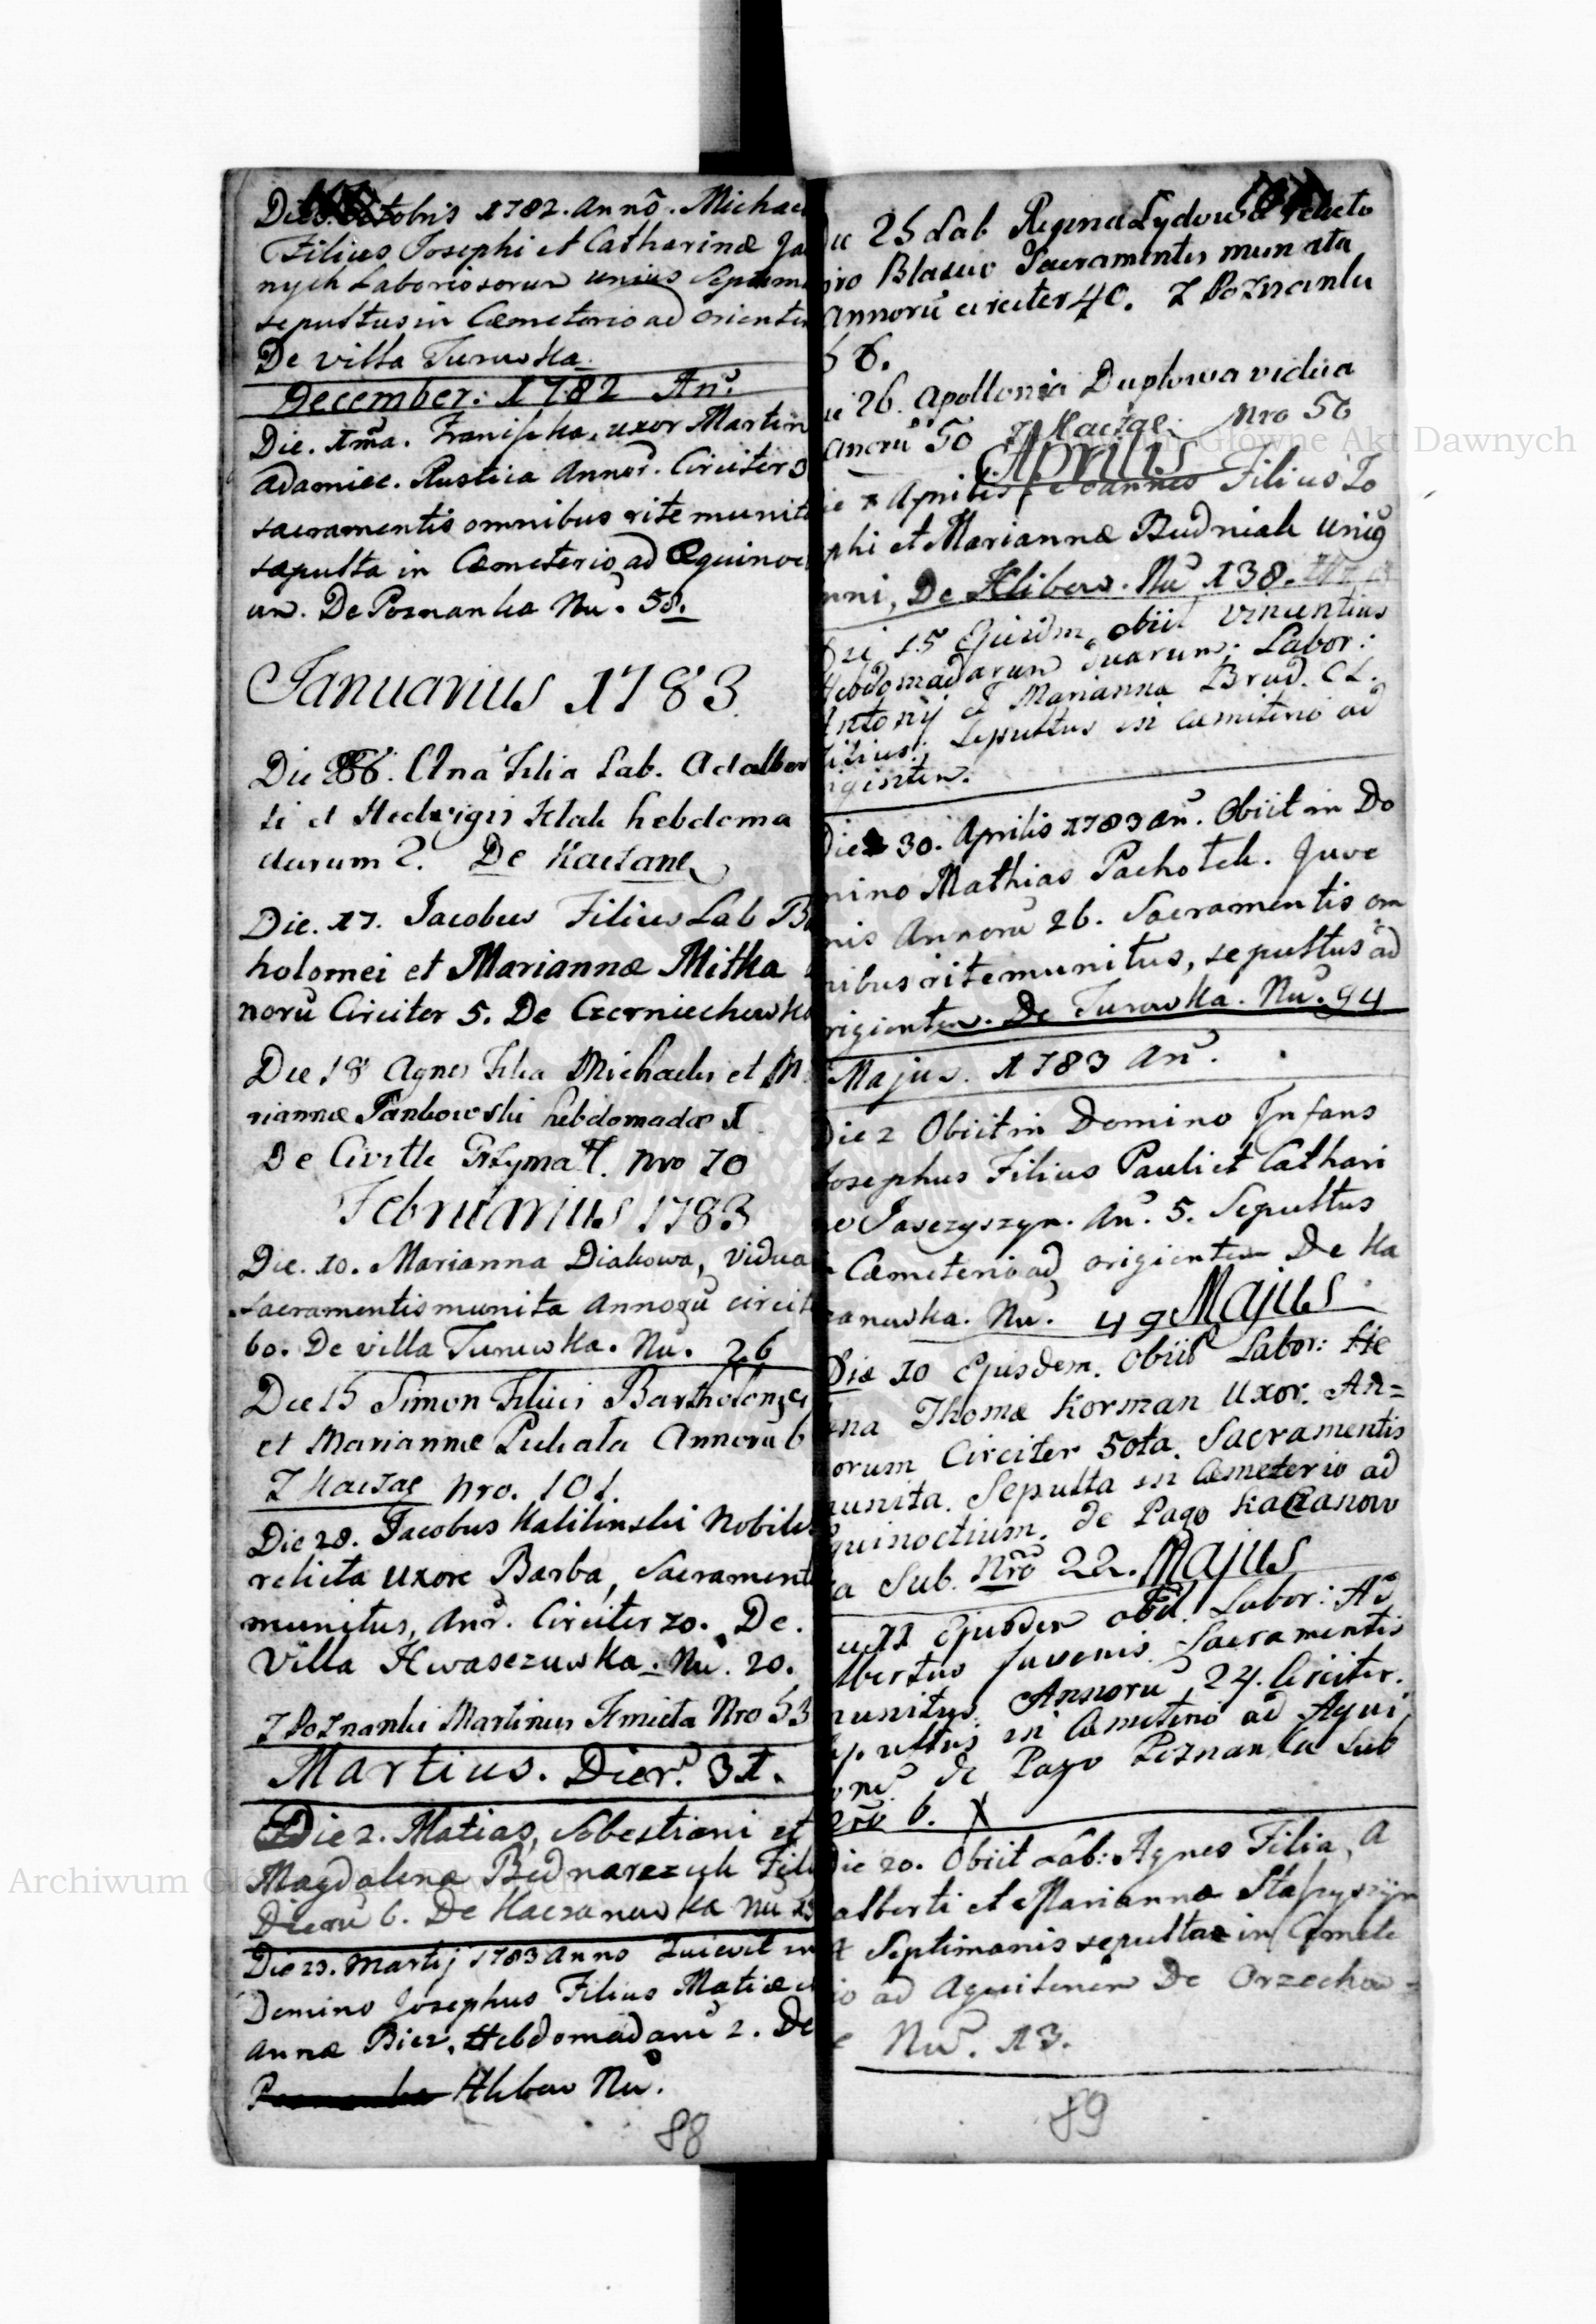 Octobris 1782. Anno. Michae
Filius Josephi et Catharinæ Ja
nych Laboriosorum unius Septim
sepultus in Cæmeterio ad orientem
De villa Turuwka.
December: 1782 An.
Die. 1ma. Franiska, uxor Martin
Adamiec. Rustica Annor. Circiter 3
sacramentis omnibus rite munita
sepulta in Cæmeterio ad Æquinoc
um. De Poznanka Nu. 58.
Januarius 1783
Die Ana Filia Lab. Adalber
ti et Hedvigis Klak hebdoma
darum 2. De Kaczane
Die. 17. Jacobus Filius Lab B
holomei et Mariannæ Mitka
noru Circiter 5. De Czerniechuwka
Die 18 Agnes Filia Michaelis et M
riannæ Pankowski hebdomadæ 1
De Civitte Grzymał. Nro 70
Februarius 1783
Die. 10. Marianna Diakowa, Vidua
sacramentis munita Annoru circit
60. De villa Turuwka. Nu. 26
Die 15 Simon Filius Bartholomei
et Mariannæ Puhata Annoru 6
Z Kaczae Nro. 101.
Die 28. Jacobus Kalilinski Nobilis
relicta uxore Barba, Sacrament
munitus, Anr. Circiter 70. De.
Villa Kwasezuwka. Nu. 20.
Z Poznanki Martinus Kmieta Nro 53
Martius. Dier. 31.
Die 2. Matias, Sebestiani et
Magdalena Bednarczuk Fili
Dieru 6. De Kaczanuwka Nu
Die 23. Martij 1783 Anno Quievit in
Domino Josephus Filius Matiæ et
Annæ Bicz, Hebdomadaru 2. De
Klibow Nu.
88
Die 25 Lab Regina Lydow relicto
viro Blasio Sacramentis munita
Annoru circiter 40. Z Poznanki
56.
Die 26. Apollonia Duplowa vidua
Anoru 50 Z Kaczae. Nro 56
Aprilis
Die Aprilis Joannes Filius Jo
phi et Mariannæ Budniak uniu
nni, De Klibow. Nu 138.
Die 15 Ejusdm, obiit Vincentius
Hebdomadarum duarum: Labor:
Antonij et Marianna Brud. CL.
Filius; Sepultus in Cæmiterio ad
rigientem.
Die 30. Aprilis 1783 an. Obiit in Do
mino Mathias Pachotek. Juve
nis Annoru 26. Sacramentis om
nibus rite munitus, sepultus ad
rigientem. De Turowka. Nu. 94
Majus. 1783 an.
Die 2 Obiit in Domino Infans
Josephus Filius Pauli et Cathari
Jasczyszyn. an. 5. Sepultus
Cæmeterio ad origientem De Ka
zanuwka. Nu. 49 Majus
Die 10 Ejusdem. Obiit Labor: He
ena Thomæ Korman Uxor. An=
orum Circiter 50ta. Sacramentis
munita. Sepulta in Cæmeterio ad
quinoctium. de Pago Kaczanow
ka Sub. Nro 22. Majus
Ejusdem obiit. Labor: Ad
lbertus Juvenis. Sacramentis
munitus. Annoru 24. Circiter.
Sepultus in Cæmiterio ad Aqui
on. de Pago Poznanka Sub
Nro 6. X
Die 20. Obiit Lab: Agnes Filia A
alberti et Mariannæ Staszyszyn
Septimanis sepulta in Cemete
io ad Aquitonem De Orzechow
Nu. 13.
89
Archiwum Główne Akt Dawnych
Archiwum Główne Akt Dawnych